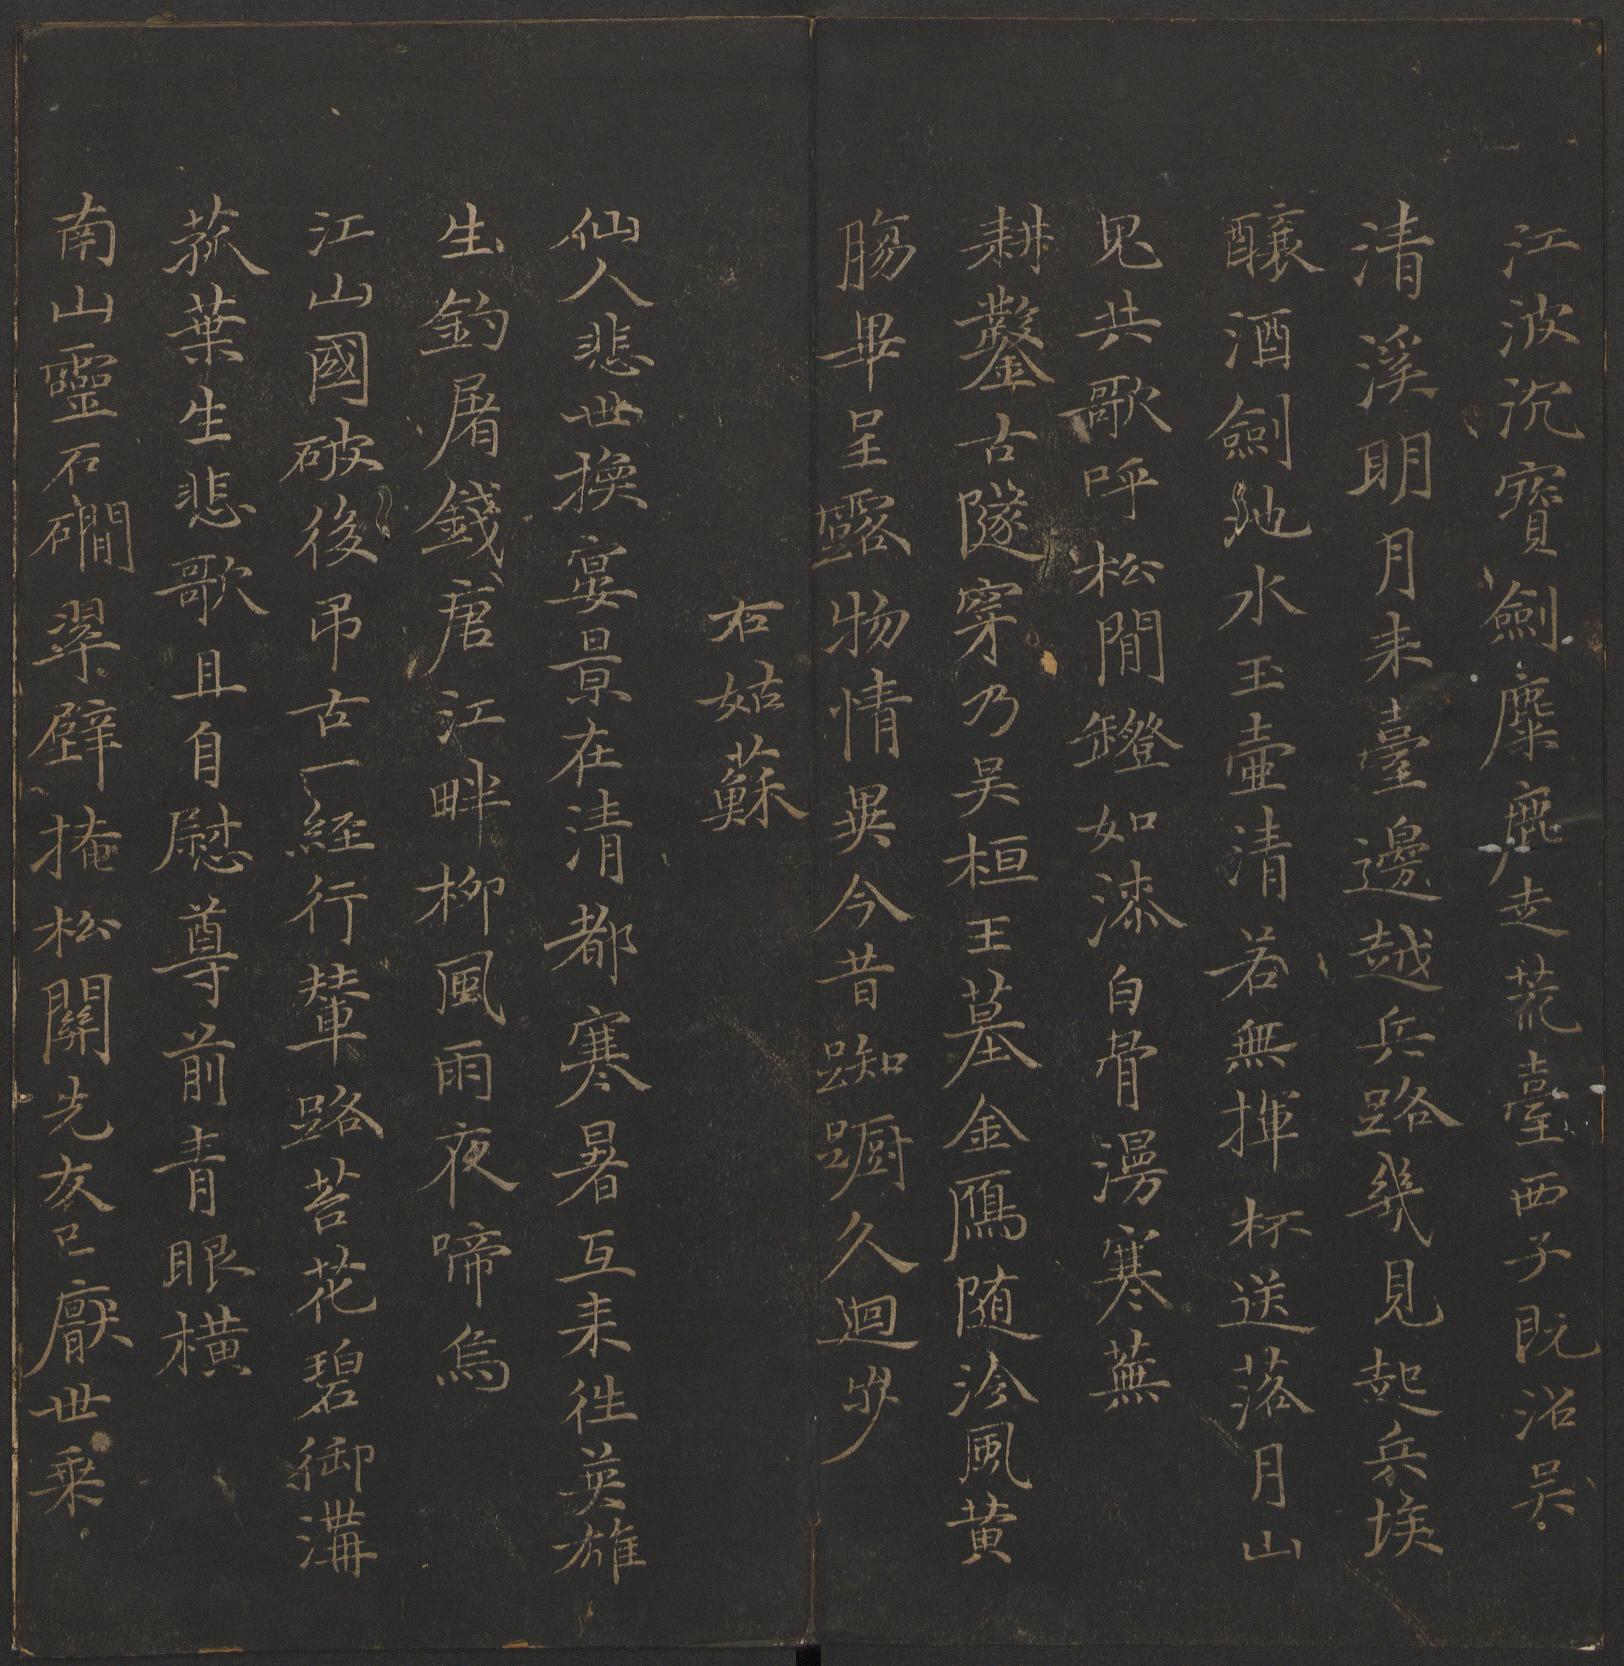 江波沉寶劍麋鹿走荒臺西子既沼吴
清溪明月来臺邊越兵路幾見起兵埃
釀酒劍池水玉壺清若無揮杯送落月山
鬼共歌呼松間鐙如漆白骨漫寒蕪
耕鑿古隧穿乃吴桓王墓金鴈随冷風黄
腸畢呈露物情異今昔踟蹰久迴步
右姑蘇
仙人悲世換宴景在清都寒暑互来徃英雄
生釣屠錢唐江畔柳風雨夜啼烏
江山國破後吊古一経行輦路苔花碧御溝
菰葉生悲歌且自慰尊前青眼横
南山靈石磵翠壁掩松關先友已厭世乗